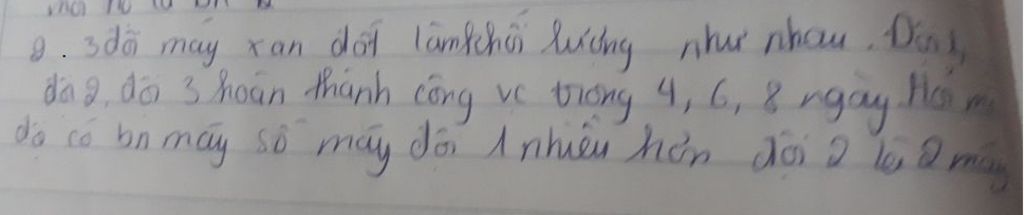 2. 3 đội máy xan đất làm khối lượng như nhau. Đội 1,
đội 2, đội 3 hoàn thành công vc trong 4, 6, 8 ngày Hỏi m
đội có bn máy số máy đội 1 nhiều hơn đội 2 là 2 máy